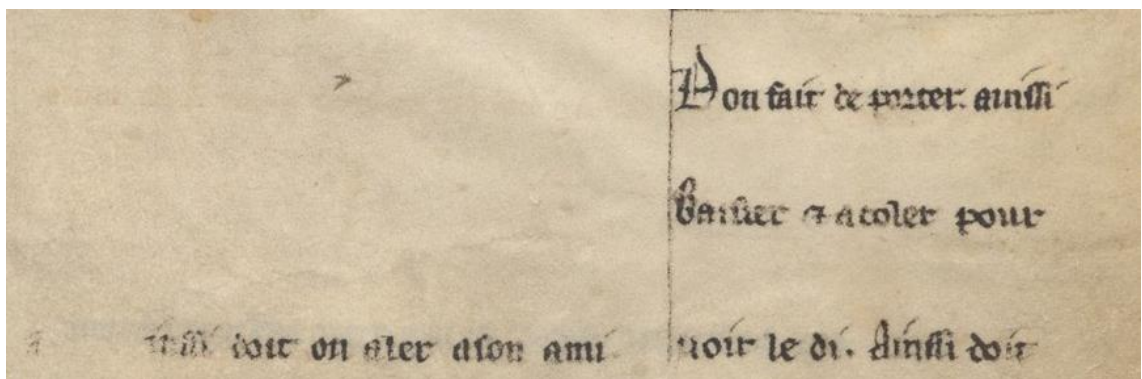 a inssi doit on aler ason ami
Bon fait de porter. ainssi
baisier ⁊ acoler pour
uoir le di. Ainssi doit